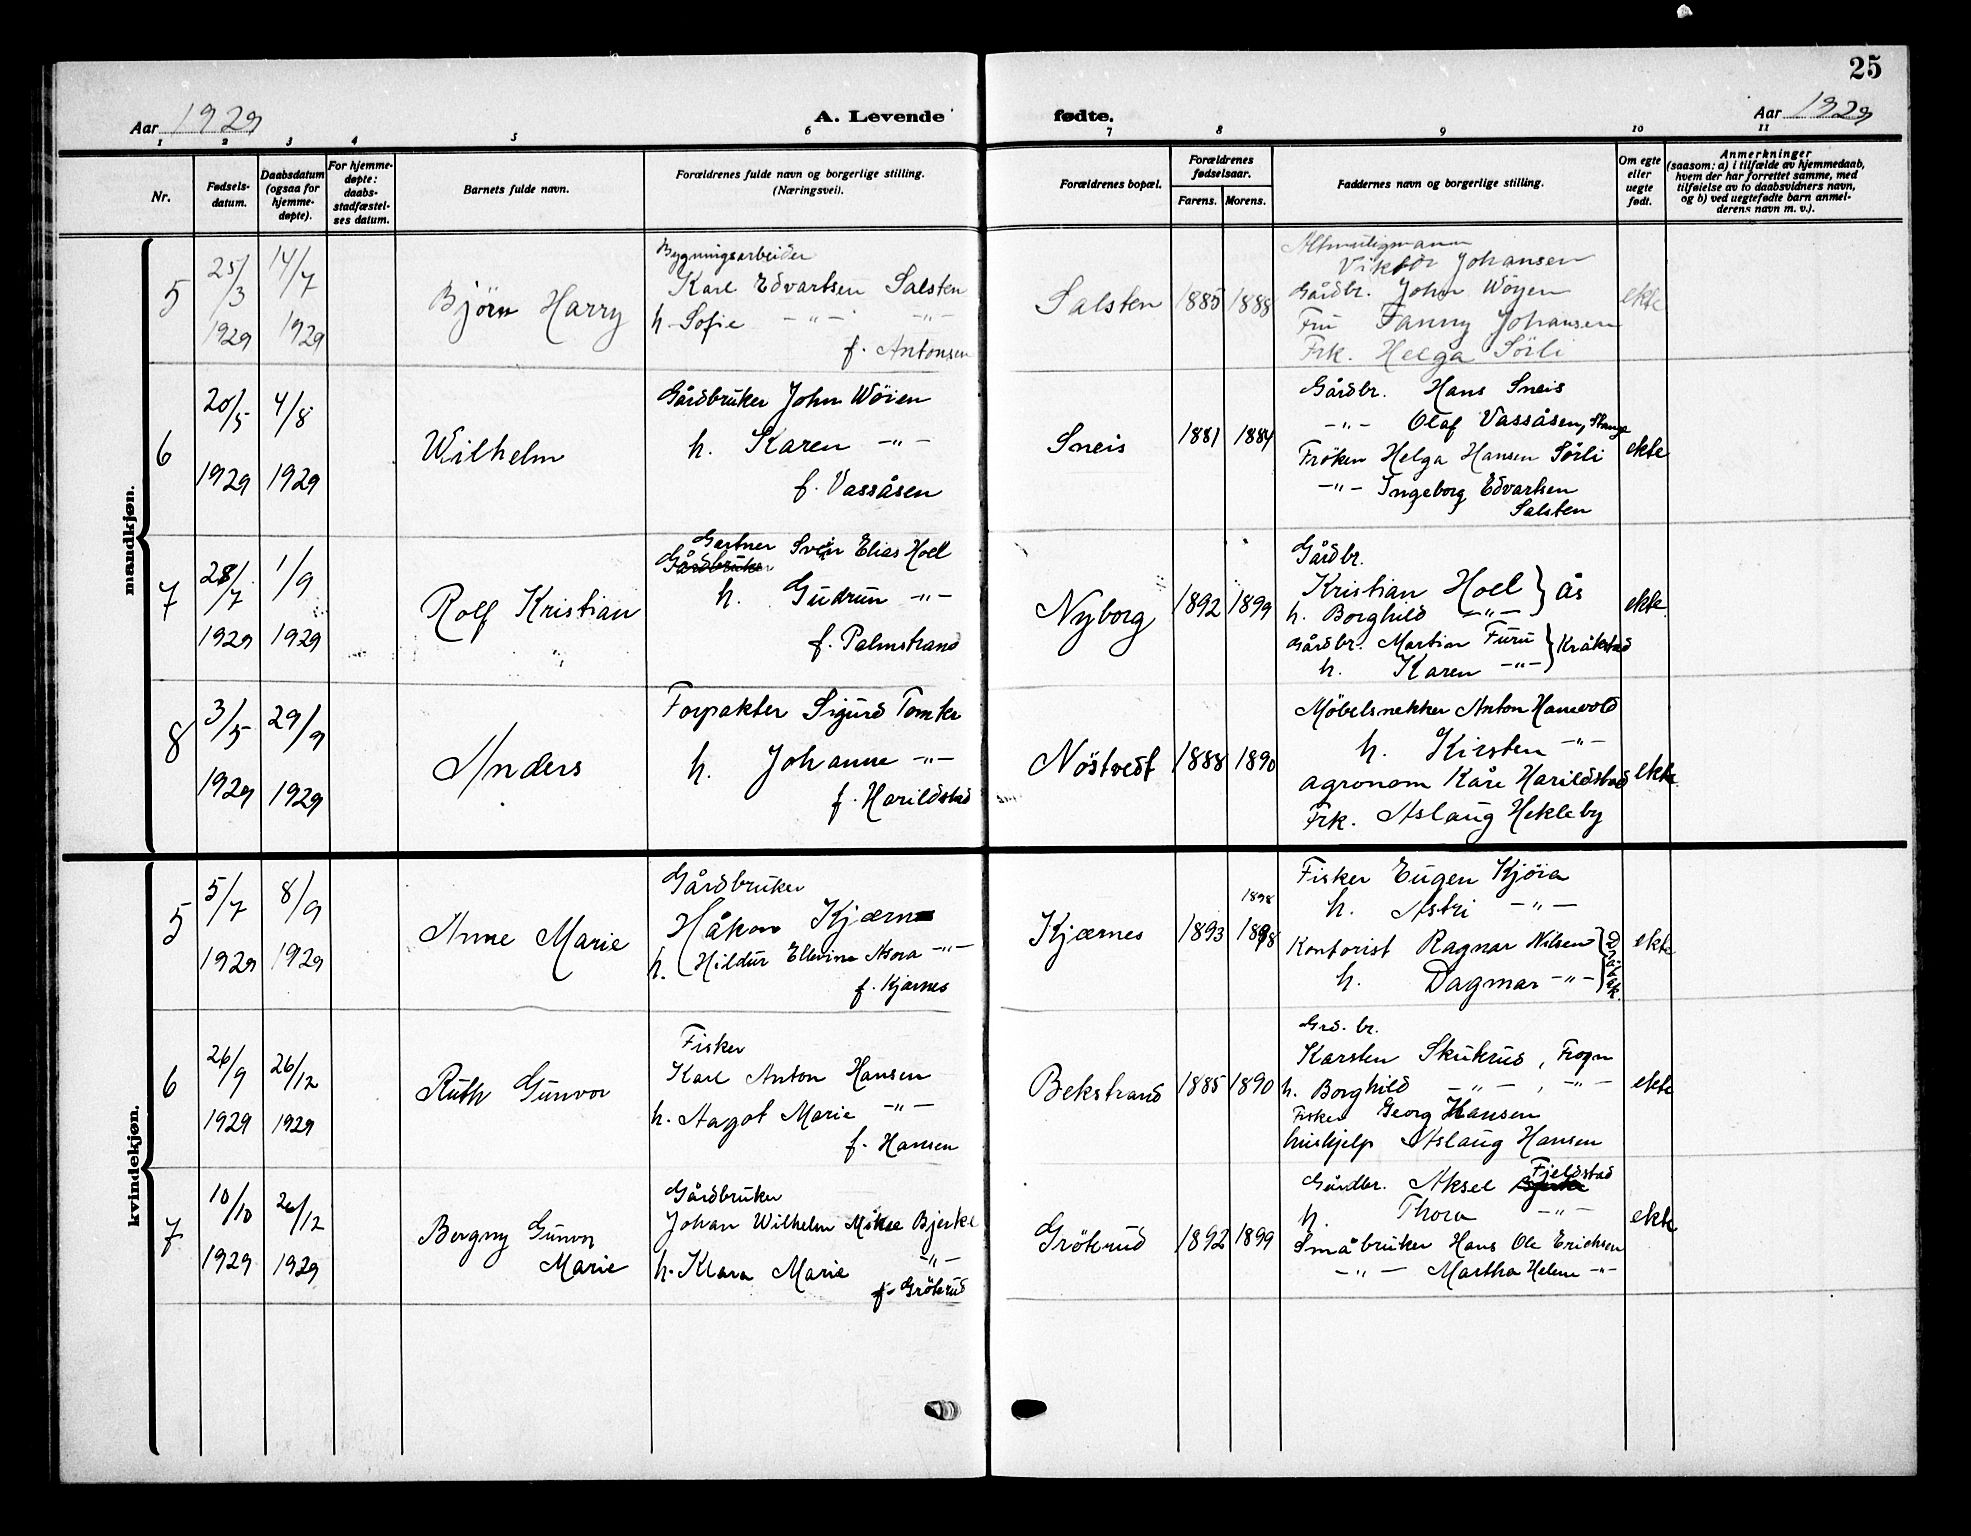 25
Aar 1929
A. Levende
fødte.
Aar 1929
1 2 3 4 5 6 7 8 9 10 11
Nr.
Fødsels-
datum.
Daabsdatum
(ogsaa for
hjemme-
døpte).
For hjemme-
døpte:
daabs-
stadfæstel-
ses datum.
Barnets fulde navn.
Forældrenes fulde navn og borgerlige stilling.
(Næringsvei).
Forældrenes bopæl.
Forældrenes
fødselsaar.
Farens. Morens.
Faddernes navn og borgerlige stilling.
Om egte
eller
uegte
født.
Anmerkninger
(saasom: a) i tilfælde av hjemmedaab,
hvem der har forrettet samme, med
tilføielse av to daabsvidners navn,
og b) ved uegtefødte barn anmel-
derens navn m. v.).
mandkjøn.
5
25/3
1929
14/7
1929
Björn Harry
Bygningsarbeider
Karl Edvartsen Salsten
h. Sofie -"- -"-
f. Antonsen
Salsten
1885
1888
Altmuligmann
Viktor Johansen
Gårdbr. John Wöyen
Fru Fanny Johansen
Frk. Helga Sörli
ekte
6
20/5
1929
4/8
1929
Wilhelm
Gårdbruker John Wöien
h. Karen -"-
f. Vassåsen
Sneis
1881
1884
Gårdbr. Hans Sneis
-"- Olaf Vassåsen, Stange
Fröken Helga Hansen Sörli
-"- Ingeborg Edvartsen
Salsten
ekte
7
28/7
1929
1/9
1929
Rolf Kristian
Gartner Svein Elias Hoel
Gårdbruker
h. Gudrun -"-
f. Palmstrand
Nyborg
1892
1899
Gårdbr.
Kristian Hoel } Ås
h. Borghild -"-
Gårdbr. Martin Furu } Kråkstad
h. Karen -"-
ekte
8
3/5
1929
29/9
1929
Anders
Forpakter Sigurd Tomter
h. Johanne -"-
f. Harildstad
Nöstvedt
1888
1890
Möbelsnekker Anton Hanevold
h. Kirsten -"-
agronom Kåre Harildstad
Frk. Aslaug Hekleby
ekte
kvindekjøn.
5
5/7
1929
8/9
1929
Anne Marie
Gårdbruker
Håkon Kjærnes
h. Hildur Ellevine Asora -"-
f. Kjærnes
Kjærnes
1893
1898
1898
Fisker Eugen Kjöra
h. Astri -"-
Kontorist Ragnar Nilsen } Dröbak
h. Dagmar -"-
ekte
6
26/9
1929
26/12
1929
Ruth Gunvor
Fisker
Karl Anton Hansen
h. Aagot Marie -"-
f. Hansen
Bekstrand
1885
1890
Grd. br.
Karsten Skukrud, Frogn
h. Borghild -"-, -"-
Fisker Georg Hansen
hushjelp Aslaug Hansen
ekte
7
10/10
1929
26/12
1929
Bergny Gunvor
Marie
Gårdbruker
Johan Wilhelm Bjerke
h. Klara Marie -"-
f. Gröterud
Gröterud
1892
1899
Fjeldstad
Gårdbr. Aksel
h. Thora -"-
Småbruker Hans Ole Erichsen
-"- Martha Helene -"-
ekte